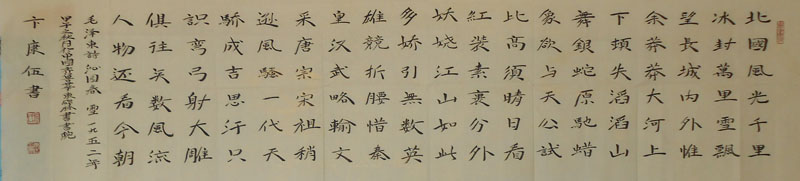 北國風光千里
冰封萬里雪飄
望長城內外惟
余莽莽大河上
下頓失滔滔山
舞銀蛇原馳蜡
象欲与天公試
比高須晴日看
紅裝素裹分外
妖嬈江山如此
多嬌引無數英
雄競折腰惜秦
皇汉武略輸文
采唐宗宋祖稍
遜風騷一代天
驕成吉思汗只
識弯弓射大雕
俱往矣数風流
人物还看今朝
毛泽東詩沁园春雪
卞康伍書